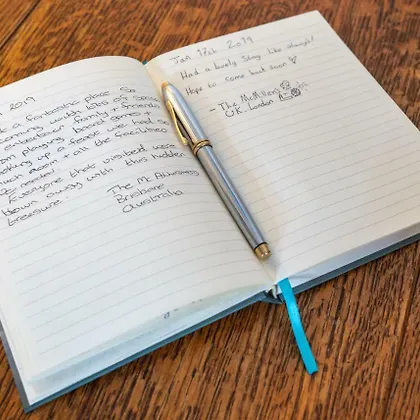 2019
a fantastic place so
charming, with lots of space
entertain family + friends
From playing board games +
cooking up a feast we had so
much room + all the facilities
needed.
Everyone that visited was
blown away with this hidden
treasure.
The McAlinesses
Brisbane
Australia
Jan 17th 2019
Had a lovely stay like always!
Hope to come back soon
- The McMillens
U.K. London